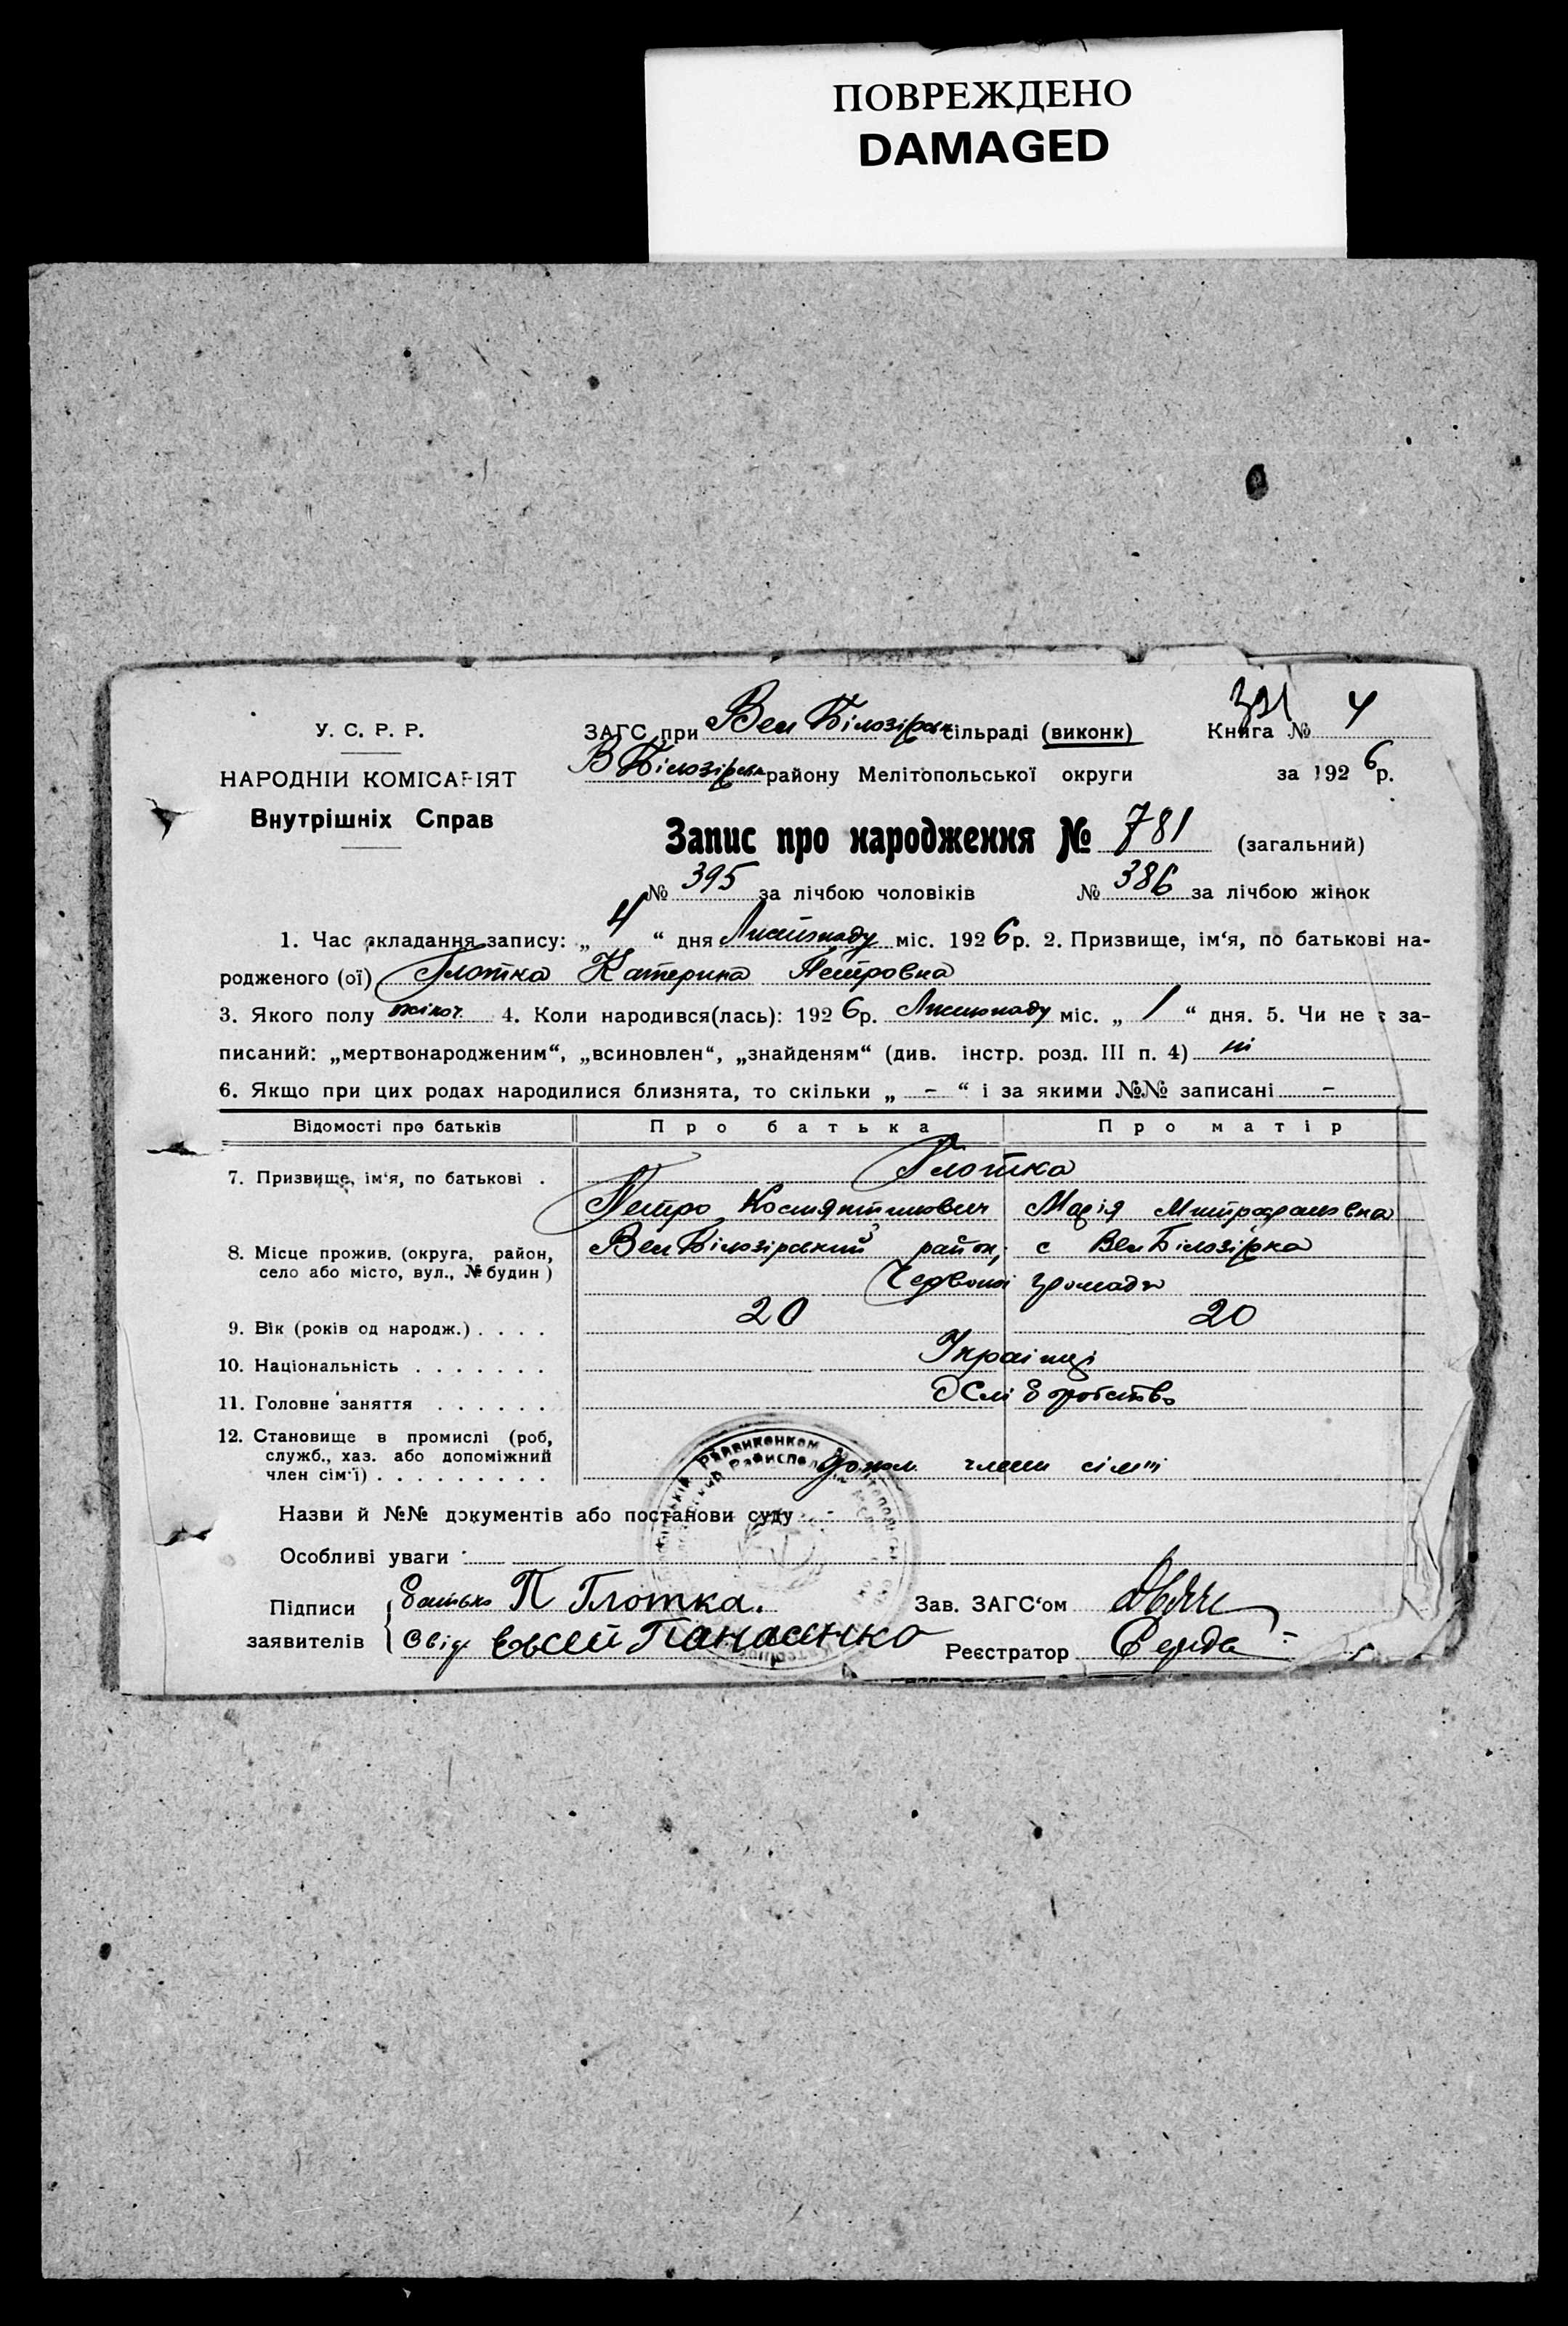 ПОВРЕЖДЕНО
DAMAGED
321 4
У. С. Р. Р.
ЗАГС при Вел Білозірськ сільраді (виконк) Книга №
В Білозірськ району Мелітопольської округи за 1926 р.
НАРОДНІИ КОМІСАРІЯТ
Внутрішніх Справ
Запис про народження № 781 (загальний)
№ 395 за лічбою чоловіків № 386 за лічбою жінок
1. Час складання запису: „ 4 “ дня Листопаду міс. 1926 р. 2. Призвище, ім‘я, по батькові на-
родженого (ої) Глотка Катерина Петровна
3. Якого полу жіноч. 4. Коли народився(лась): 1926 р. Листопаду міс. „ 1 “ дня. 5. Чи не є за-
писаний: „мертвонародженим“, „всиновлен“, „знайденям“ (див. інстр. розд. III п. 4) ні
6. Якщо при цих родах народилися близнята, то скільки „ - “ і за якими №№ записані -
Відомості про батьків Про батька Про матір
Глотка
7. Призвище, ім‘я, по батькові .
Петро Костянтинович Марія Митрофановна
8. Місце прожив. (округа, район, Вел Білозірський район, с Вел Білозірка
село або місто, вул., № будин )
Червоної громади
9. Вік (років од народж.) . . . . 20 20
10. Національність . . . . . . . Українці
11. Головне заняття . . . . . . Хліборобство
12. Становище в промислі (роб,
служб., хаз. або допоміжний
член сім‘ї) . . . . . . . . . допом. члени сімї
Назви й №№ документів або постанови суду -
Особливі уваги
Підписи заявителів
батько П Глотка.
Свід Евсей Панасенко
Зав. ЗАГС‘ом
Реєстратор Середа